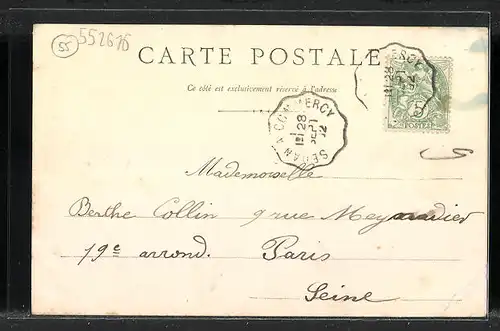 55 552616
CARTE POSTALE
Ce côté est exclusivement réservé à l'adresse
SEDAN A COMMERCY
1E
28
SEPT
02
POSTALE
Mademoiselle
Berthe Collin 9 rue Meynadier
19e arrond. Paris
Seine